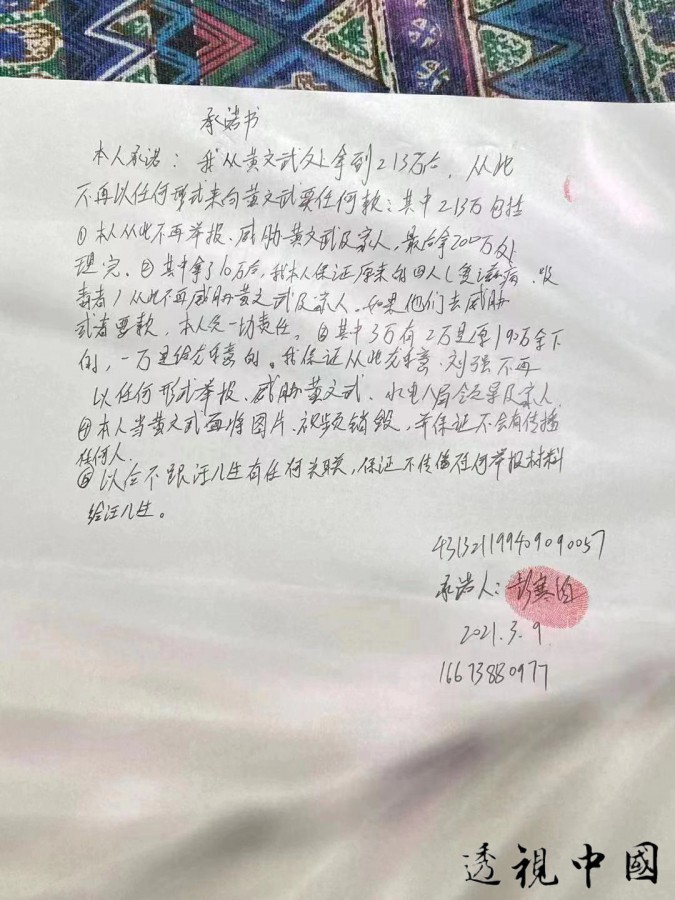 承诺书
本人承诺：我从黄文武处拿到213万后，从此
不再以任何形式来向黄文武要任何款；其中213万包括
①本人从此不再举报、威胁黄文武及家人，最后拿200万处
理完。②其中拿了10万后，我本人保证原来的四人（艾滋病、吸
毒者）从此不再威胁黄文武及家人。如果他们去威胁
或者要款，本人负一切责任。③其中3万有2万是原190万余下
的，一万是给的。我保证从此刘强不再
以任何形式举报、威胁黄文武、水电八局领导及家人。
④本人当黄文武面将图片、视频销毁，并保证不会有传播
任何人。
⑤以后不跟汪儿生有任何关联，保证不传播任何举报材料
给汪儿生。
431321199409090057
承诺人：彭寒
2021.3.9
16673880977
透視中國